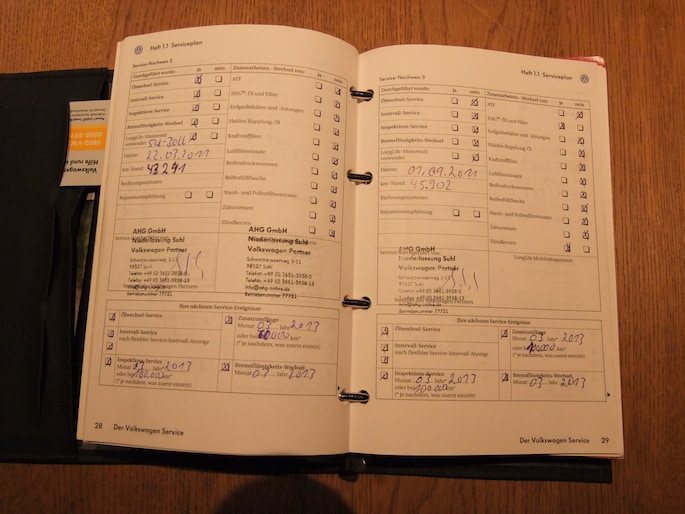 Heft 1.1 Serviceplan
Service-Nachweis 2
Durchgeführt wurde: ja nein Zusatzarbeiten - Wechsel von: ja nein
Ölwechsel-Service
ATF
Intervall-Service
DSG®-Öl und Filter
Inspektions-Service
Erdgasbehälter und -leitungen
Bremsflüssigkeits-Wechsel
Haldex Kupplung, Öl
LongLife-Motorenöl
verwendet
Kraftstofffilter
Datum: 22.03.2011
Luftfiltereinsatz
km-Stand: 43241
Reifendruckssensoren
Rechnungsnummer:
Reifenfüllflasche
Reparaturempfehlung
Staub- und Pollenfiltereinsatz
Zahnriemen
Zündkerzen
AHG GmbH
Niederlassung Suhl
Volkswagen Partner
Schwarzwasserweg 3-11
Telefon +49 (0) 3681-3938-0
Telefax +49 (0) 3681-3938-13
info@ahg-online.de
Betriebsnummer 77721
AHG GmbH
Niederlassung Suhl
Volkswagen Partner
Schwarzwasserweg 3-11
98527 Suhl
Telefon +49 (0) 3681-3938-0
Telefax +49 (0) 3681-3938-13
info@ahg-online.de
Betriebsnummer 77721
Ihre nächsten Service-Ereignisse
Ölwechsel-Service
Zusatzumfänge
Monat 03 Jahr 2013
oder bei 60000 km*
(* je nachdem, was zuerst eintritt)
Intervall-Service
nach flexibler Service-Intervall-Anzeige
Inspektions-Service
Monat 03 Jahr 2013
oder bei 100.000 km*
(* je nachdem, was zuerst eintritt)
Bremsflüssigkeits-Wechsel
Monat 03 Jahr 2013
28 Der Volkswagen Service
Heft 1.1 Serviceplan
Service-Nachweis 3
Durchgeführt wurde: ja nein Zusatzarbeiten - Wechsel von: ja nein
Ölwechsel-Service
ATF
Intervall-Service
DSG®-Öl und Filter
Inspektions-Service
Erdgasbehälter und -leitungen
Bremsflüssigkeits-Wechsel
Haldex Kupplung, Öl
LongLife-Motorenöl
verwendet
Kraftstofffilter
Datum: 01.09.2011
Luftfiltereinsatz
km-Stand: 45.902
Reifendruckssensoren
Rechnungsnummer:
Reifenfüllflasche
Reparaturempfehlung
Staub- und Pollenfiltereinsatz
Zahnriemen
Zündkerzen
LongLife Mobilitätsgarantie
AHG GmbH
Niederlassung Suhl
Volkswagen Partner
Schwarzwasserweg 3-11
98527 Suhl
Telefon +49 (0) 3681-3938-0
Telefax +49 (0) 3681-3938-13
info@ahg-online.de
Betriebsnummer 77721
Ihre nächsten Service-Ereignisse
Ölwechsel-Service
Zusatzumfänge
Monat 03 Jahr 2013
(* je nachdem, was zuerst eintritt)
Intervall-Service
nach flexibler Service-Intervall-Anzeige
Inspektions-Service
Monat 03 Jahr 2013
(* je nachdem, was zuerst eintritt)
Bremsflüssigkeits-Wechsel
Monat 03 Jahr 2013
Der Volkswagen Service 29